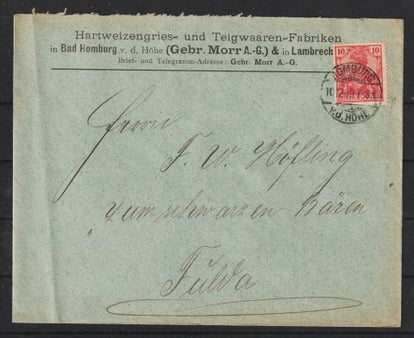 Hartweizengries- und Teigwaaren-Fabriken
in Bad Homburg v. d. Höhe (Gebr. Morr A.-G.) & in Lambrech
Brief- und Telegramm-Adresse: Gebr. Morr A.-G.
10 10
HOMBURG
V.D. HÖHE
Herrn
F. W. Höfling
zum schwarzen Bären
Fulda